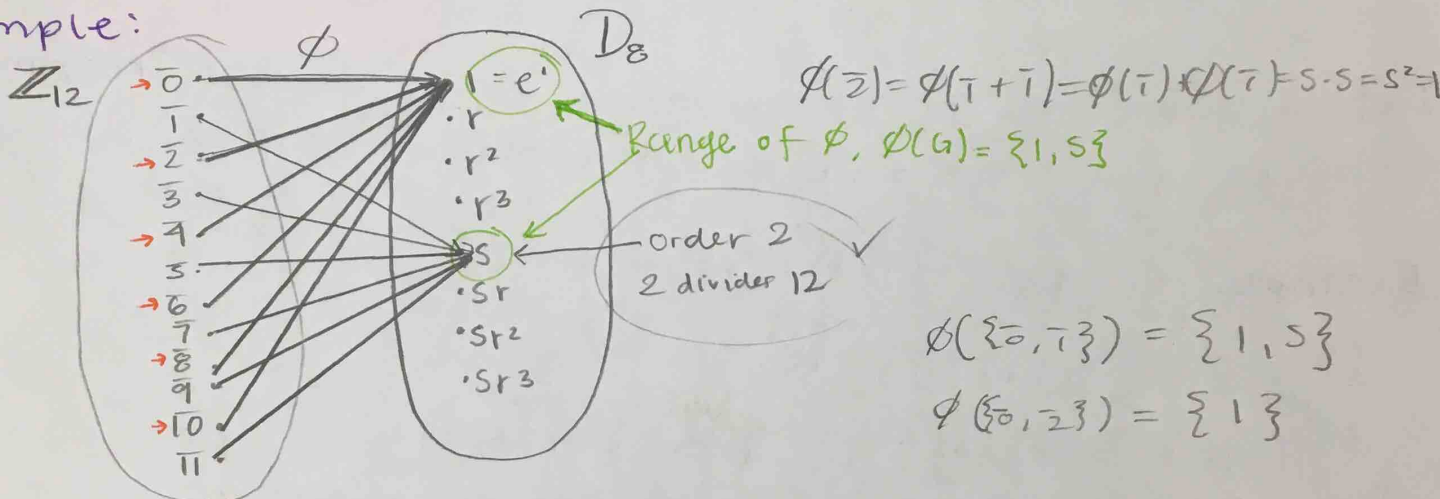 mple:
ℤ₁₂
ϕ
D₈
0̄
1̄
2̄
3̄
4̄
5
6̄
7̄
8̄
9̄
1̄0̄
1̄1̄
1 = e'
·r
·r²
·r³
s
·sr
·sr²
·sr³
ϕ(2̄) = ϕ(1̄ + 1̄) = ϕ(1̄) · ϕ(1̄) = s·s = s² = 1
Range of ϕ, ϕ(G) = {1, s}
order 2 ✓
2 divider 12
ϕ({0̄, 1̄}) = {1, s}
ϕ({0̄, 2̄}) = {1}